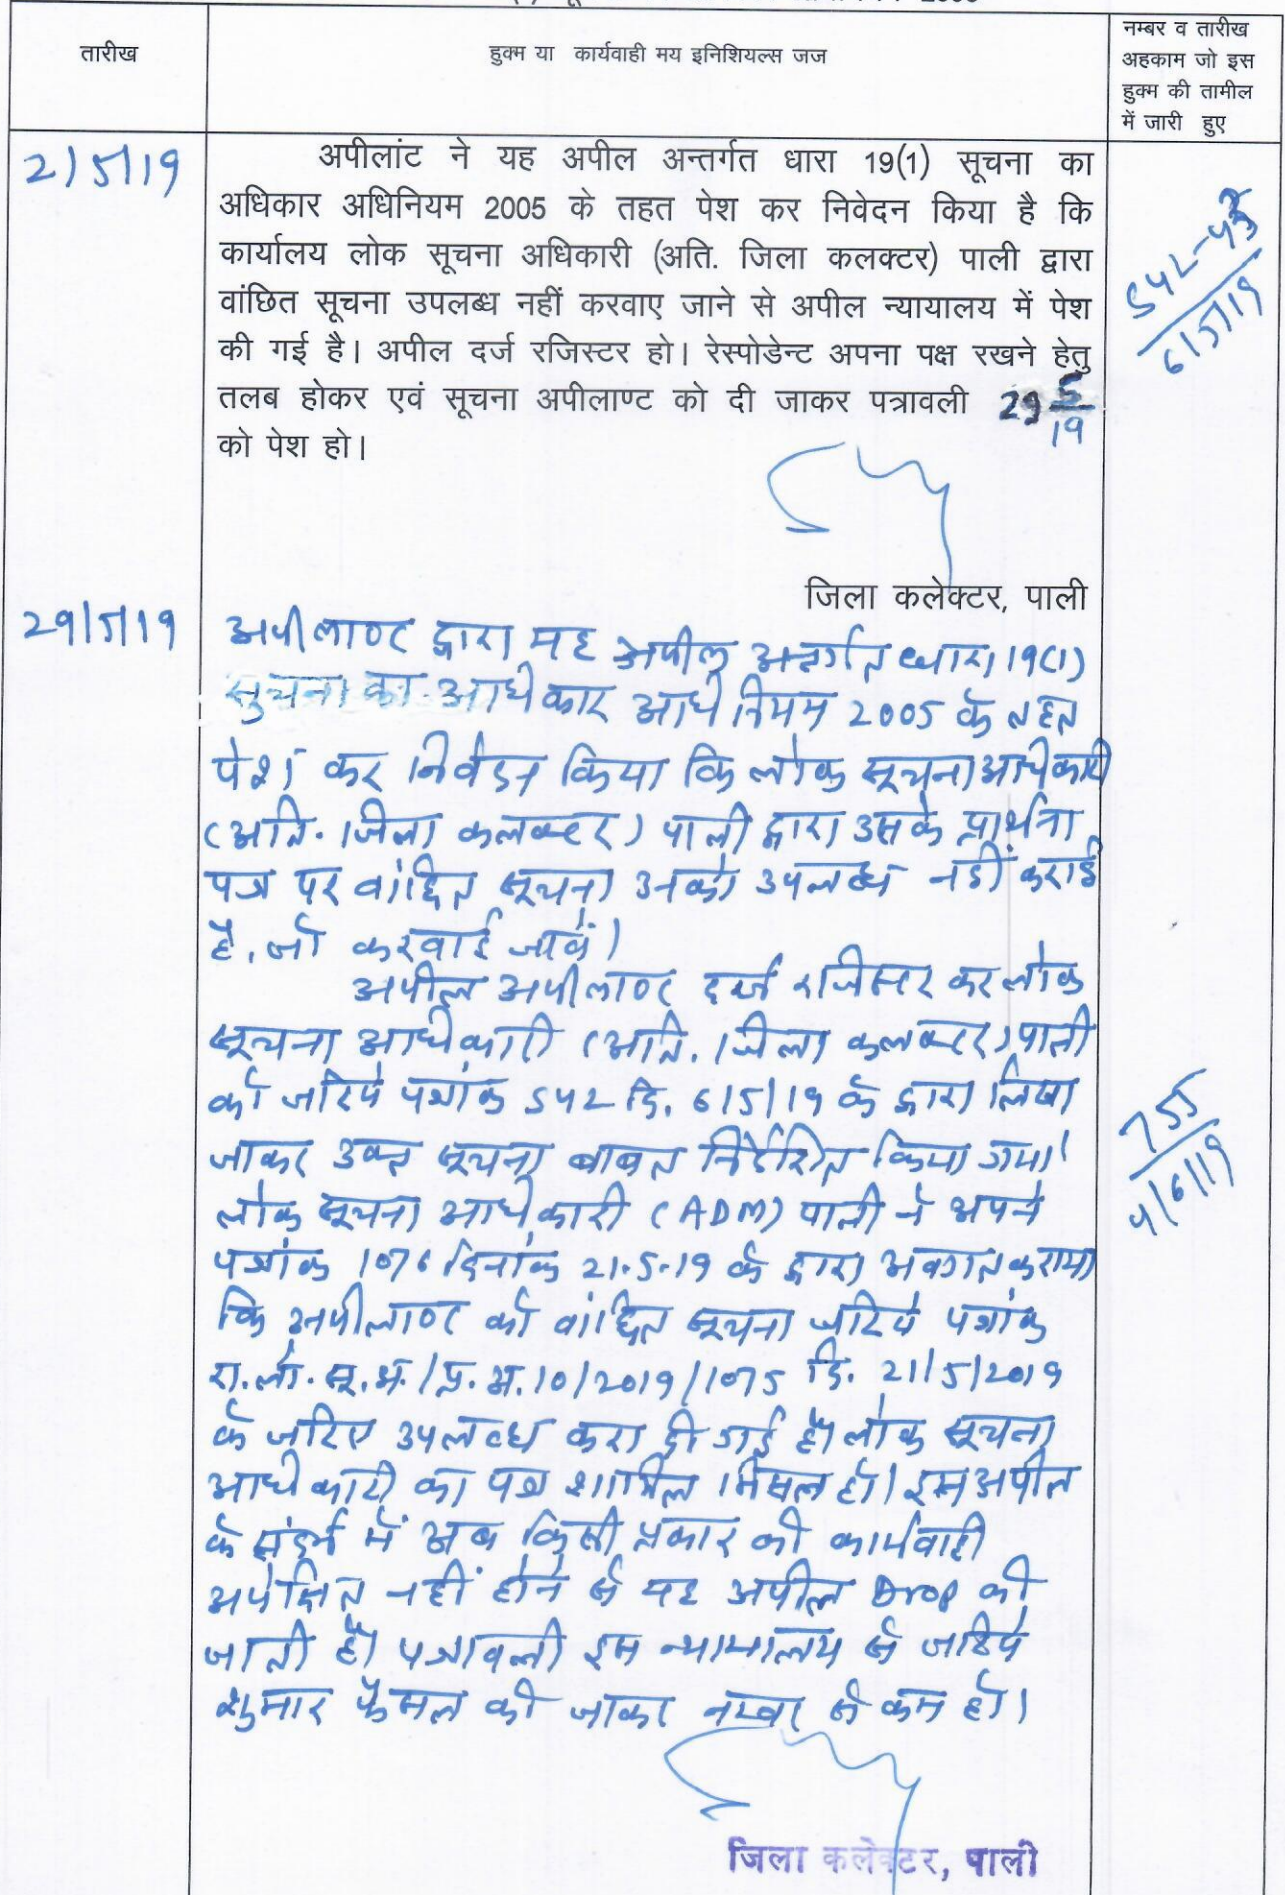 तारीख
हुक्म या कार्यवाही मय इनिशियल्स जज
नम्बर व तारीख
अहकाम जो इस
हुक्म की तामील
में जारी हुए
2/5/19
अपीलांट ने यह अपील अन्तर्गत धारा 19(1) सूचना का
अधिकार अधिनियम 2005 के तहत पेश कर निवेदन किया है कि
कार्यालय लोक सूचना अधिकारी (अति. जिला कलक्टर) पाली द्वारा
वांछित सूचना उपलब्ध नहीं करवाए जाने से अपील न्यायालय में पेश
की गई है। अपील दर्ज रजिस्टर हो। रेस्पोडेन्ट अपना पक्ष रखने हेतु
तलब होकर एवं सूचना अपीलाण्ट को दी जाकर पत्रावली 29 5/19
को पेश हो।
542-43
6/5/19
जिला कलेक्टर, पाली
29/5/19
अपीलाण्ट द्वारा यह अपील अन्तर्गत धारा 19(1)
सुचना का अधिकार अधिनियम 2005 के तहत
पेश कर निवेदन किया कि लोक सूचना अधिकारी
(अति. जिला कलक्टर) पाली द्वारा उसके प्रार्थना
पत्र पर वांछित सूचना उनको उपलब्ध नहीं कराई
है, जो करवाई जावें।
अपील अपीलाण्ट दर्ज रजिस्टर कर लोक
सूचना अधिकारी (अति. जिला कलक्टर) पाली
को जरिये पत्रांक 542 दि. 6/5/19 के द्वारा लिखा
जाकर उक्त सूचना बाबत निर्देशित किया गया।
लोक सूचना अधिकारी (ADM) पाली ने अपने
पत्रांक 1076 दिनांक 21.5.19 के द्वारा अवगत कराया
कि अपीलाण्ट को वांछित सूचना जरिये पत्रांक
रा.लो.सू.अ./प्र.अ.10/2019/1075 दि. 21/5/2019
के जरिए उपलब्ध करा दी गई है। लोक सूचना
अधिकारी का पत्र शामिल मिसल हो। इस अपील
के संदर्भ में अब किसी प्रकार की कार्यवाही
अपेक्षित नहीं होने से यह अपील Drop की
जाती है। पत्रावली इस न्यायालय से जरिये
शुमार फैसल की जाकर नम्बर से कम हो।
755
4/6/19
जिला कलेक्टर, पाली